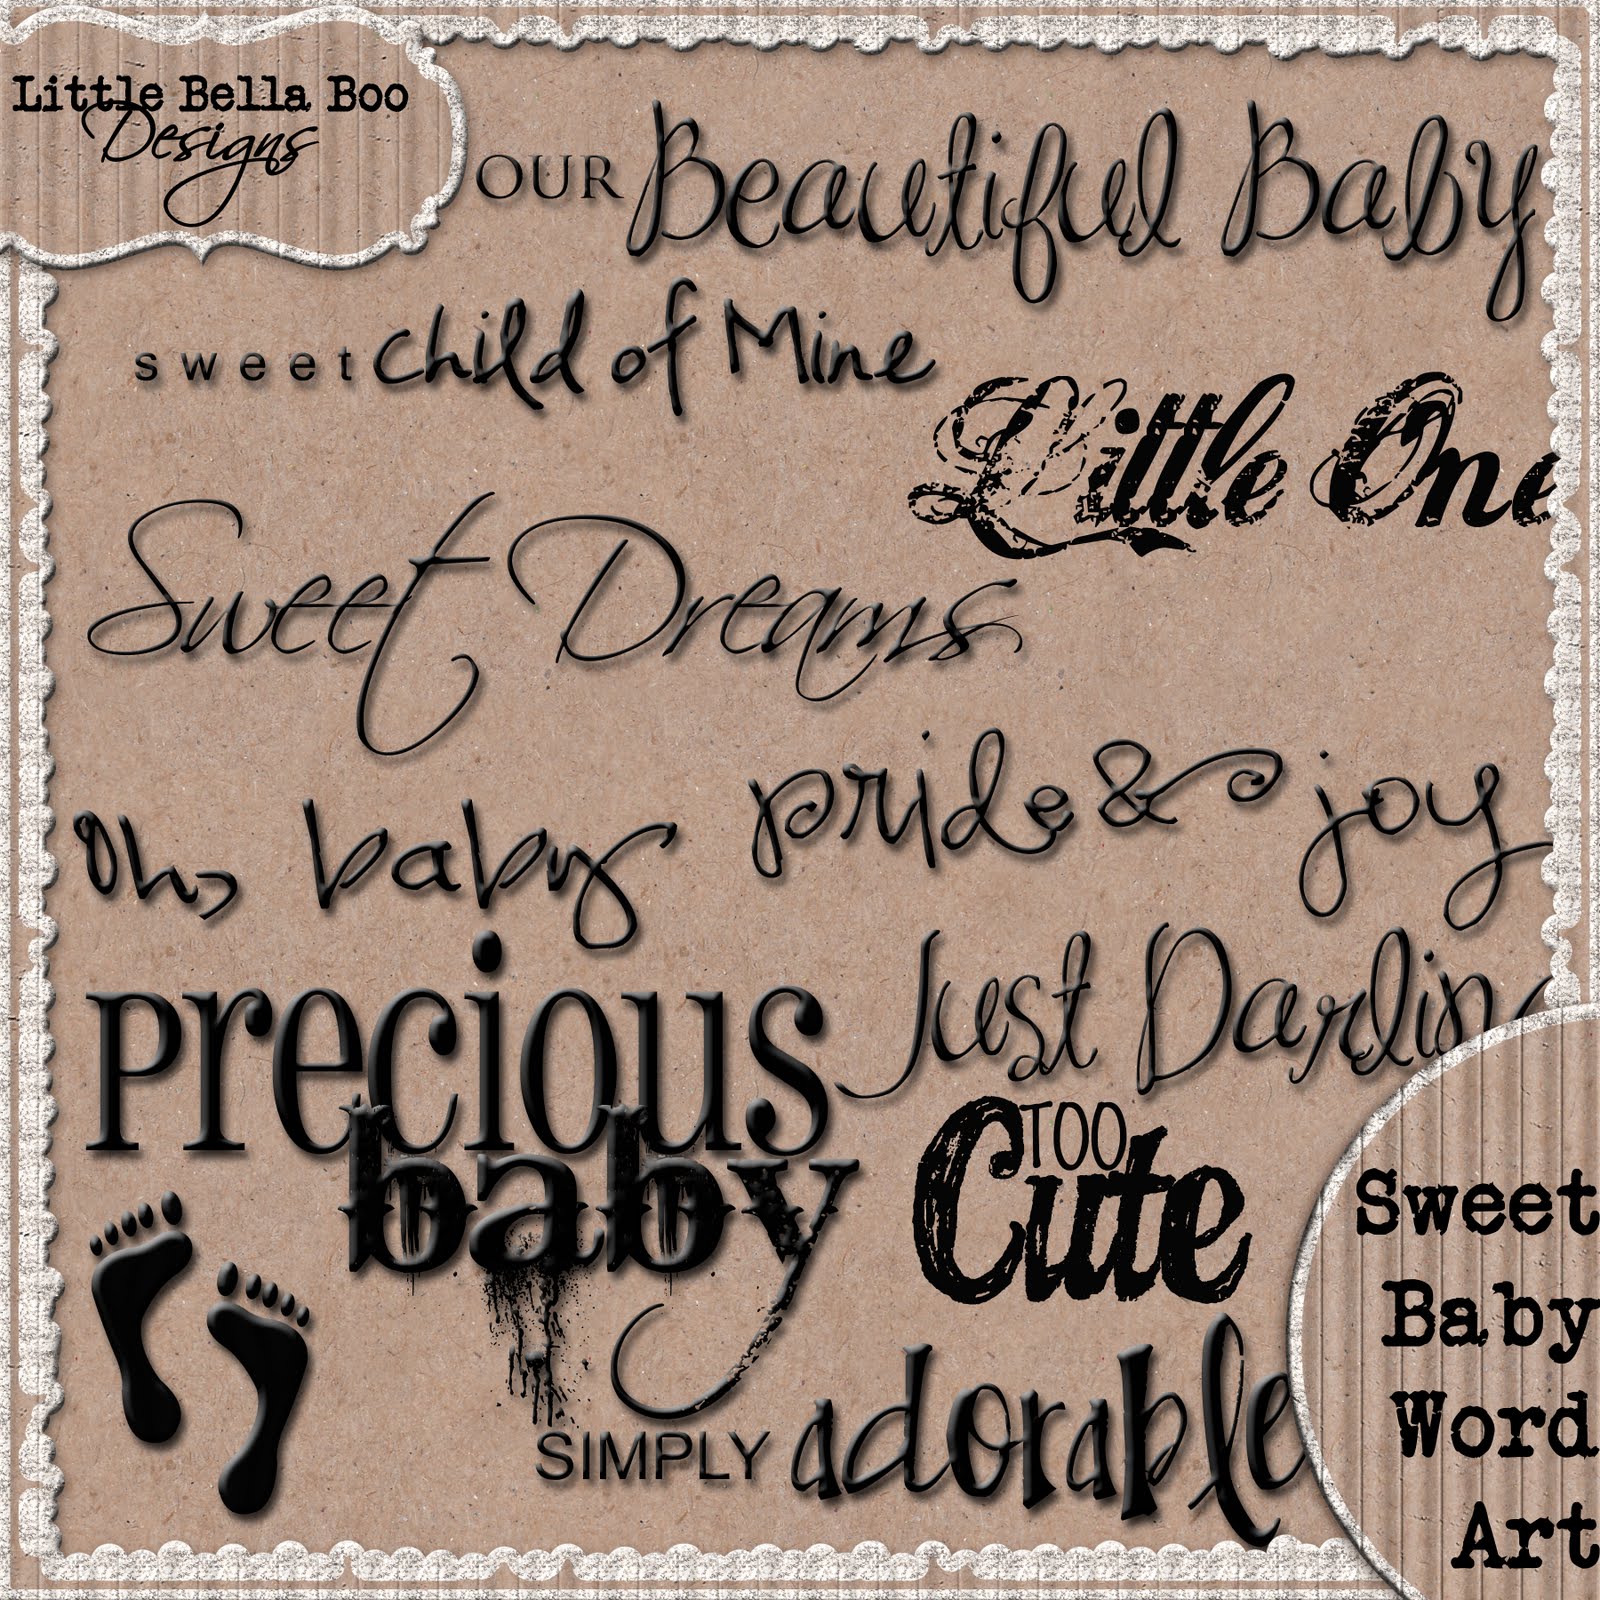 Little Bella Boo
Designs
OUR Beautiful Baby
sweet child of Mine
Little One
Sweet Dreams
pride & joy
Oh, baby
Just Darlin
precious
baby
TOO
Cute
SIMPLY adorable
Sweet
Baby
Word
Art